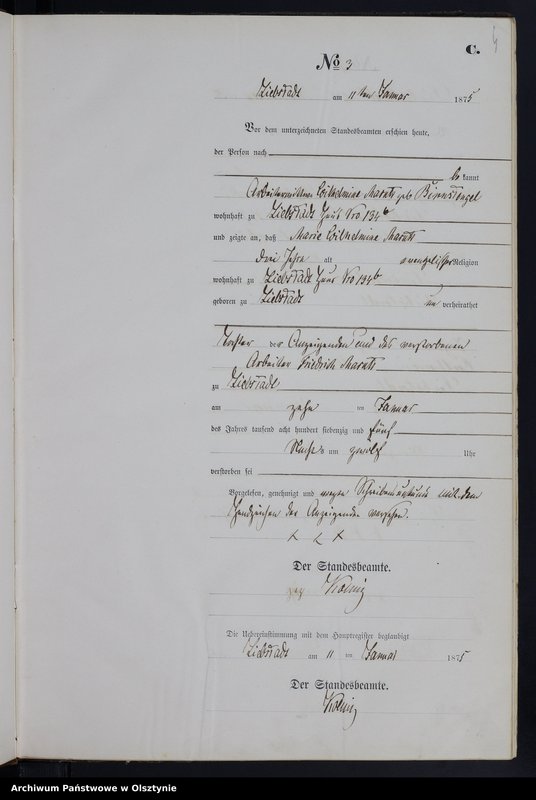 C.
No 3
Liebstadt am 11ten Januar 1875
Vor dem unterzeichneten Standesbeamten erschien heute,
der Person nach
be kannt
Arbeiterwittwe Wilhelmine geb
wohnhaft zu Liebstadt Haus Nro 134b
und zeigte an, daß Marie Wilhelmine
drei Jahre alt evangelischer Religion
wohnhaft zu Liebstadt Haus Nro 134b
geboren zu Liebstadt un verheirathet
Tochter der Anzeigenden und des verstorbenen
Arbeiter Friedrich
zu Liebstadt
am zehn ten Januar
des Jahres tausend acht hundert siebenzig und fünf
Nachts um zwölf Uhr
verstorben sei
Vorgelesen, genehmigt und wegen Schreibensunkunde mit dem
Handzeichen der Anzeigenden versehen.
x x x
Der Standesbeamte.
gez
Die Uebereinstimmung mit dem Hauptregister beglaubigt
Liebstadt am 11 ten Januar 1875
Der Standesbeamte.
Archiwum Państwowe w Olsztynie